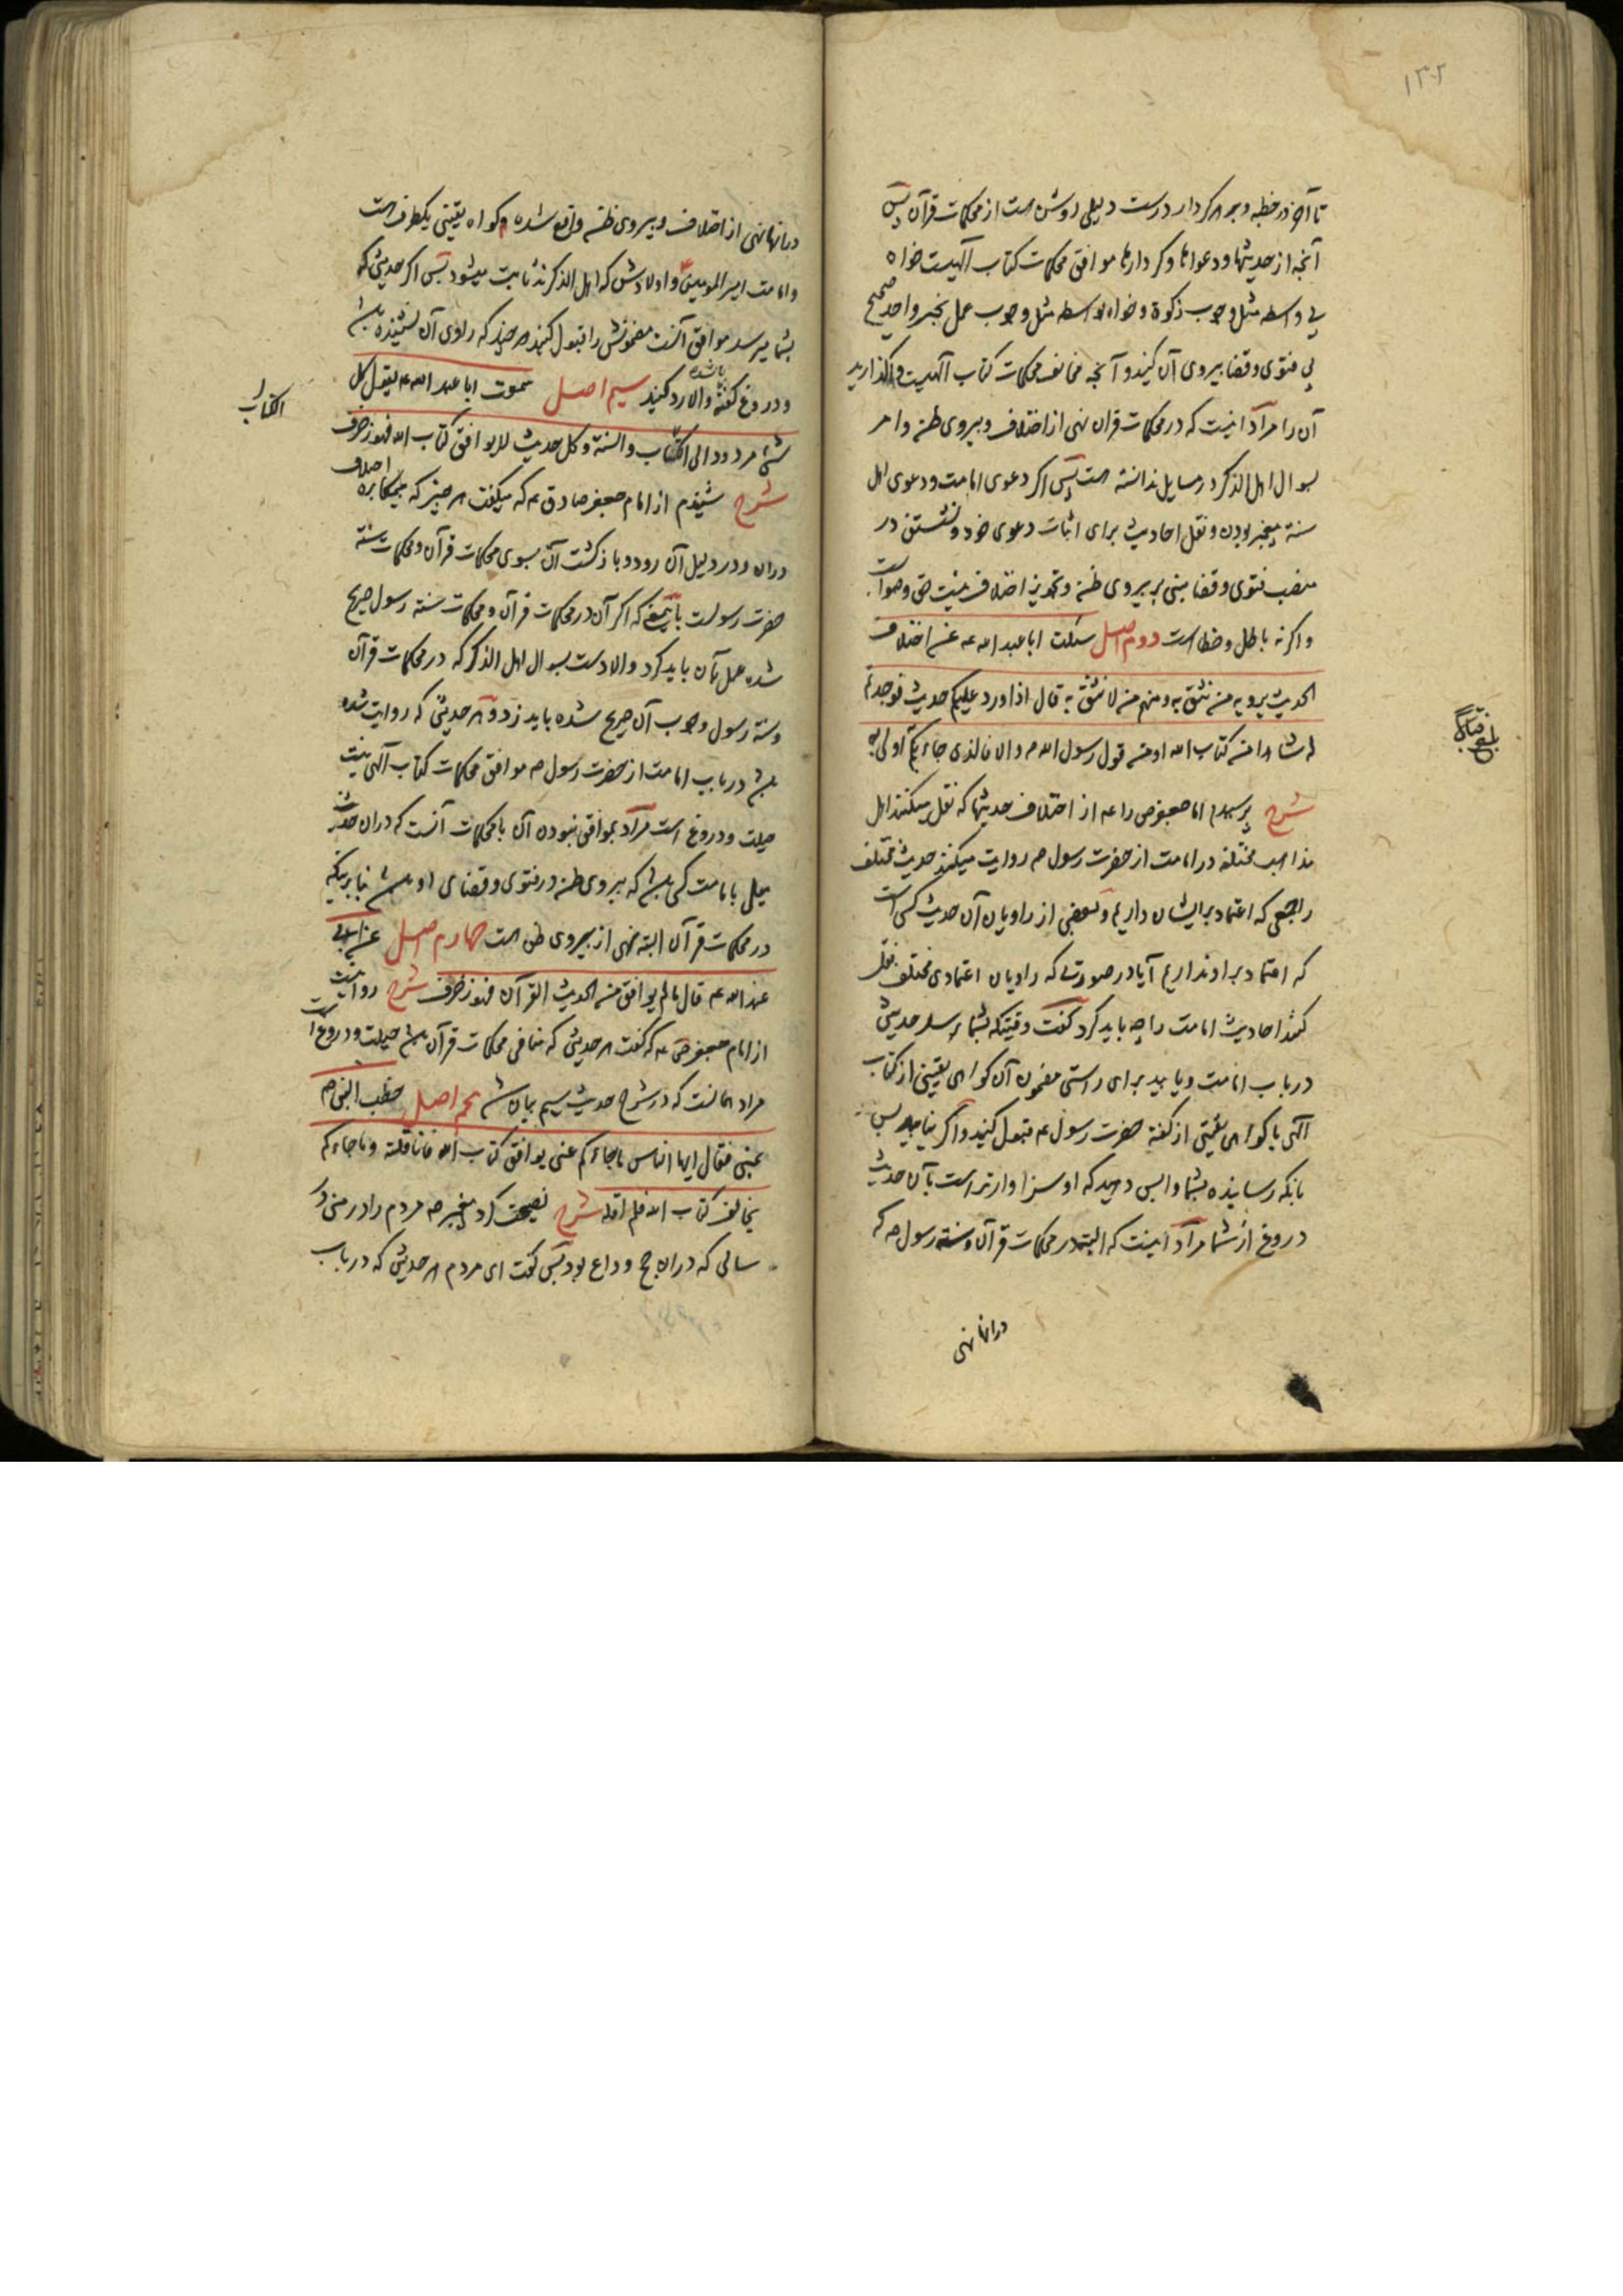 ۱۳۲
تا آخر در خطبه و بر هر کردار درست دلیلی روشن هست از محکمات قرآن پس
آنچه از حدیثها و دعواها و کردارها موافق محکمات کتاب آلهیست خواه
بی واسطه مثل وجوب زکوة و خواه بواسطه مثل وجوب عمل بخبر واحد صحیح
بی فتوی و قضا پیروی آن کنید و آنچه مخالف محکمات کتاب آلهیست واگذارید
آن را مراد اینست که در محکمات قران نهی از اختلاف و پیروی ظن و امر
بسوال اهل الذکر در مسایل ندانسته هست پس اگر دعوی امامت و دعوی اهل
سنة پیغمبر بودن و نقل احادیث برای اثبات دعوی خود و نشستن در
منصب فتوی و قضا مبنی بر پیروی ظن و تجویز اختلاف نیست حق و صوابست
و اگر نه باطل و خطاست دوم اصل سئلت ابا عبد الله عه عن اختلاف
الحدیث یرویه من نثق به و منهم من لا نثق به قال اذا ورد علیکم حدیث فوجدتم
له شاهدا من کتاب الله او من قول رسول الله ص والا فالذی جاءکم به اولی به
شرح پرسیدم امام جعفر ص را عه از اختلاف حدیثها که نقل میکنند اهل
مذاهب مختلفه در امامت از حضرت رسول ص روایت میکنند حدیث مختلف
را جمعی که اعتماد بر ایشان داریم و بعضی از راویان آن حدیث کسی است
که اعتماد بر او نداریم آیا در صورتی که راویان اعتمادی مختلف نقل
کنند احادیث امامت را چه باید کرد گفت وقتیکه بشما رسد حدیثی
در باب امامت و یابید برای راستی مضمون آن گواهی یقینی از کتاب
آلهی یا گواهی یقینی از گفته حضرت رسول عه قبول کنید و اگر نیابید پس
بانکه رساینده بشما واپس دهید که او سزاوارتر است بآن حدیث
دروغ از شما مراد اینست که البته در محکمات قرآن و سنة رسول ص که
درانها نهی
درانها نهی از اختلاف و پیروی ظن واقع شده و گواه یقینی یکطرف هست
و امامت امیر المومنین و اولادش که اهل الذکرند ثابت میشود پس اگر حدیثی که
بشما میرسد موافق آنست مضمونش را قبول کنید هر چند که راوی آن نشنیده باشد
و دروغ گفته باشد والا رد کنید سیم اصل سمعت ابا عبد الله عه یقول کل
شئ مردود الی الکتاب والسنة و کل حدیث لا یوافق کتاب الله فهو زخرف
الکتاب
شرح شنیدم از امام جعفر صادق عه که میگفت هر چیز که بیمکابره اختلاف
دران و در دلیل آن رود و بازگشت آن بسوی محکمات قرآن و محکمات سنة
حضرت رسولست باینمعنی که اگر آن در محکمات قرآن و محکمات سنة رسول صریح
شده عمل بآن باید کرد والا دست بسوال اهل الذکر که در محکمات قرآن
و سنة رسول وجوب آن صریح شده باید زد و هر حدیثی که روایت شده
باشد در باب امامت از حضرت رسول ص موافق محکمات کتاب آلهی نیست
حیلت و دروغ است مراد بموافق نبودن آن با محکمات آنست که دران حدیث
میل بامامت کسی باشد که پیروی ظن در فتوی و قضای او باشد بنابرینکه
در محکمات قرآن البته نهی از پیروی ظن هست چهارم اصل عن ابی
عبد الله عه قال ما لم یوافق من الحدیث القرآن فهو زخرف شرح روایتست
از امام جعفر ص عه که گفت هر حدیثی که منافی محکمات قرآن باشد حیلت و دروغ است
مراد همانست که در شرح حدیث سیم بیان شد پنجم اصل خطب النبی ص
بمنی فقال ایها الناس ما جاءکم عنی یوافق کتاب الله فانا قلته و ما جاءکم
یخالف کتاب الله فلم اقله شرح نصیحت کرد پیغمبر ص مردم را در منی در
سالی که دران حج وداع بود پس گفت ای مردم هر حدیثی که در باب